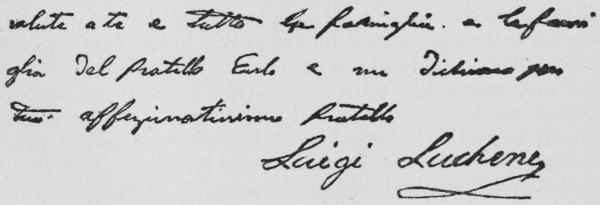 salute a te e tutto la famiglia. e la fami
glia del fratello Carlo e mi dichiaro per
tuo affezionatissimo fratello
Luigi Lucheni